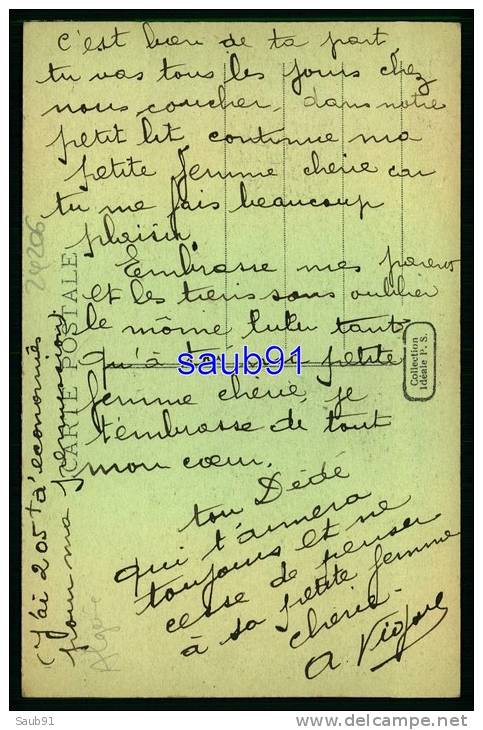 C'est bien de ta part
tu vas tous les jours chez
nous coucher, dans notre
petit lit continue ma
petite femme chérie car
tu me fais beaucoup
plaisir.
Embrasse mes parents
et les tiens sans oublier
le môme lulu tant
qu'à toi petite
femme chérie, je
t'embrasse de tout
mon cœur.
ton Dédé
qui t'aimera
toujours et ne
cesse de penser
à sa petite femme
chérie.
(J'ai 205 d'économies
pour ma permission)
CARTE POSTALE
24206
Algérie
Collection
Idéale P. S.
saub91
Saub91
www.delcampe.net